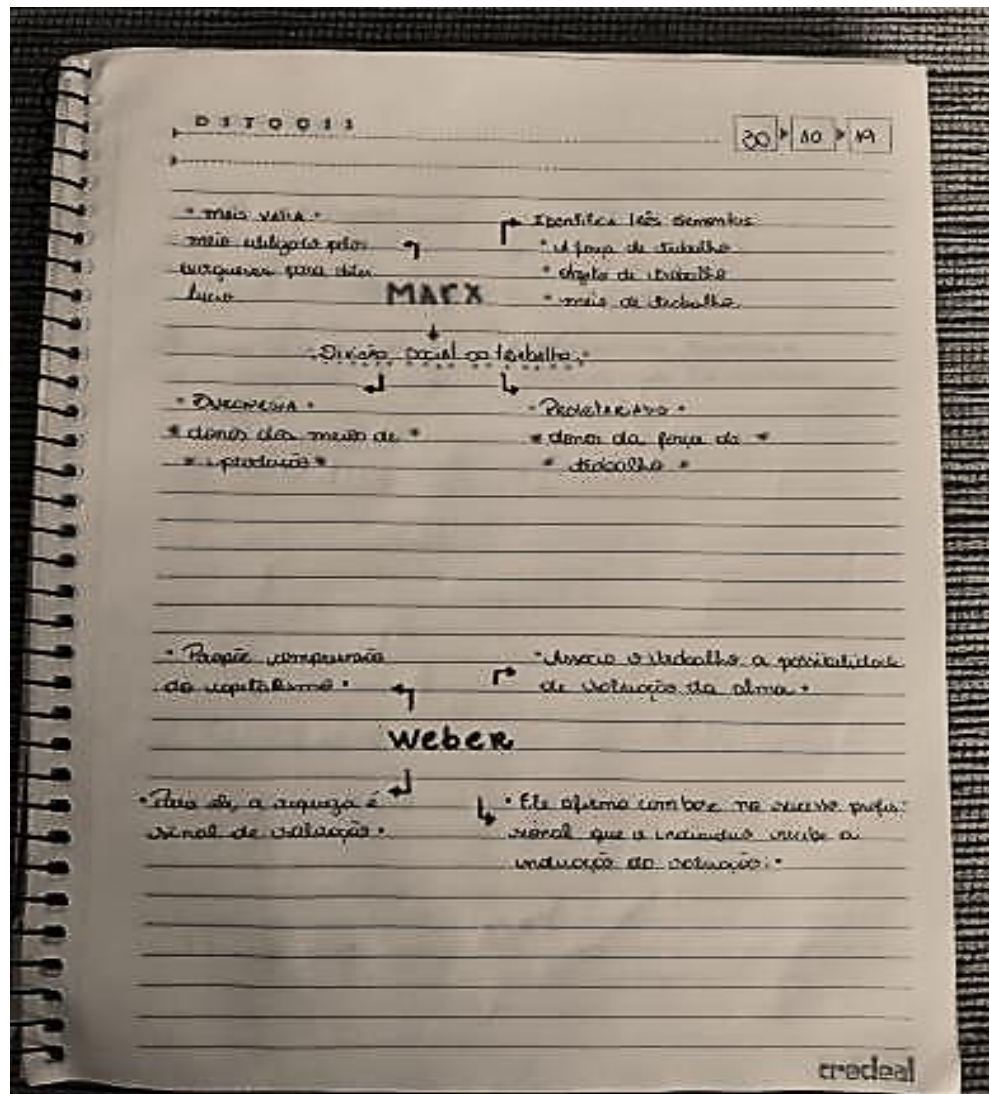 D S T Q Q S S
30 10 19
• Mais valia •
meio utilizado pelos
burgueses para obter
lucro
Identifica três elementos
• A força de trabalho
• objeto de trabalho
• meio de trabalho
MARX
• Divisão social do trabalho •
• Burguesia •
* donos dos meios de *
* produção *
• Proletariado •
* donos da força de *
* trabalho *
• Propõe compreensão
do capitalismo •
• Associa o trabalho a possibilidade
de salvação da alma •
Weber
• Para ele, a riqueza é
sinal de salvação •
• Ele afirma com base no sucesso profis-
sional que o indivíduo recebe a
da salvação •
credeal